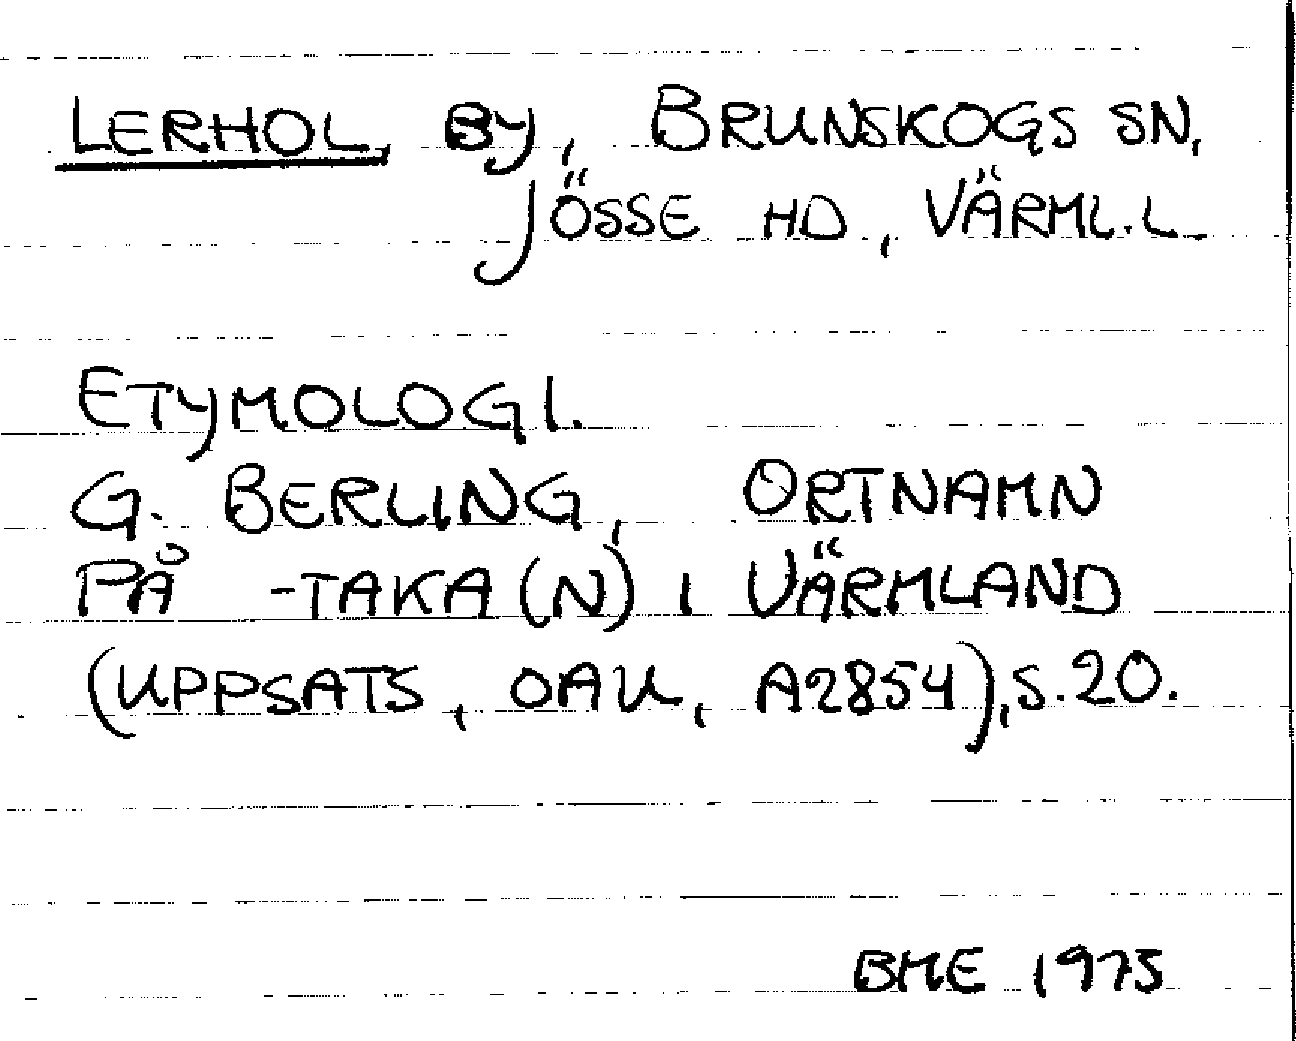 LERHOL, BY, BRUNSKOGS SN,
JÖSSE HD, VÄRML.L
ETYMOLOGI.
G. BERLING, ORTNAMN
PÅ -TAKA(N) I VÄRMLAND
(UPPSATS, OAU, A2854), S.20.
BME 1975